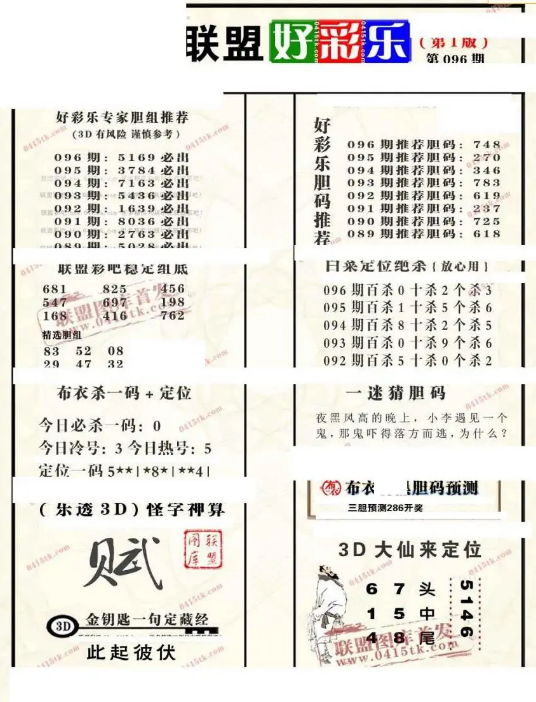 联盟好彩乐
（第1版）
第096期
好彩乐专家胆组推荐
(3D有风险 谨慎参考)
096期：5169必出
095期：3784必出
094期：7163必出
093期：5436必出
092期：1639必出
091期：8036必出
090期：2763必出
089期：5028必出
联盟彩吧稳定组底
681 825 456
547 697 198
168 416 762
精选胆组
83 52 08
29 47 32
布衣杀一码+定位
今日必杀一码：0
今日冷号：3今日热号：5
定位一码5**|*8*|**4|
（乐透3D）怪字神算
联盟图库
3D
金钥匙一句定藏经
此起彼伏
好彩乐胆码推荐
096期推荐胆码：748
095期推荐胆码：270
094期推荐胆码：346
093期推荐胆码：783
092期推荐胆码：619
091期推荐胆码：237
090期推荐胆码：725
089期推荐胆码：618
白菜定位绝杀(放心用)
096期百杀0十杀2个杀3
095期百杀1十杀5个杀6
094期百杀8十杀2个杀5
093期百杀0十杀9个杀6
092期百杀5十杀0个杀2
一迷猜胆码
夜黑风高的晚上，小李遇见一个
鬼，那鬼吓得落方而逃，为什么？
布衣
胆码预测
三胆预测286开奖
3D大仙来定位
6 7 头
1 5 中
4 8 尾
5146
联盟图库首发
www.0415tk.com
0415tk.com